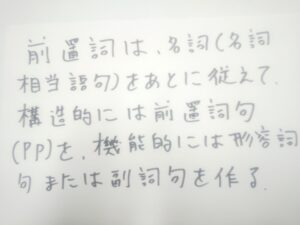 前置詞は、名詞(名詞
相当語句)をあとに従えて、
構造的には前置詞句
(PP)を、機能的には形容詞
句または副詞句を作る。